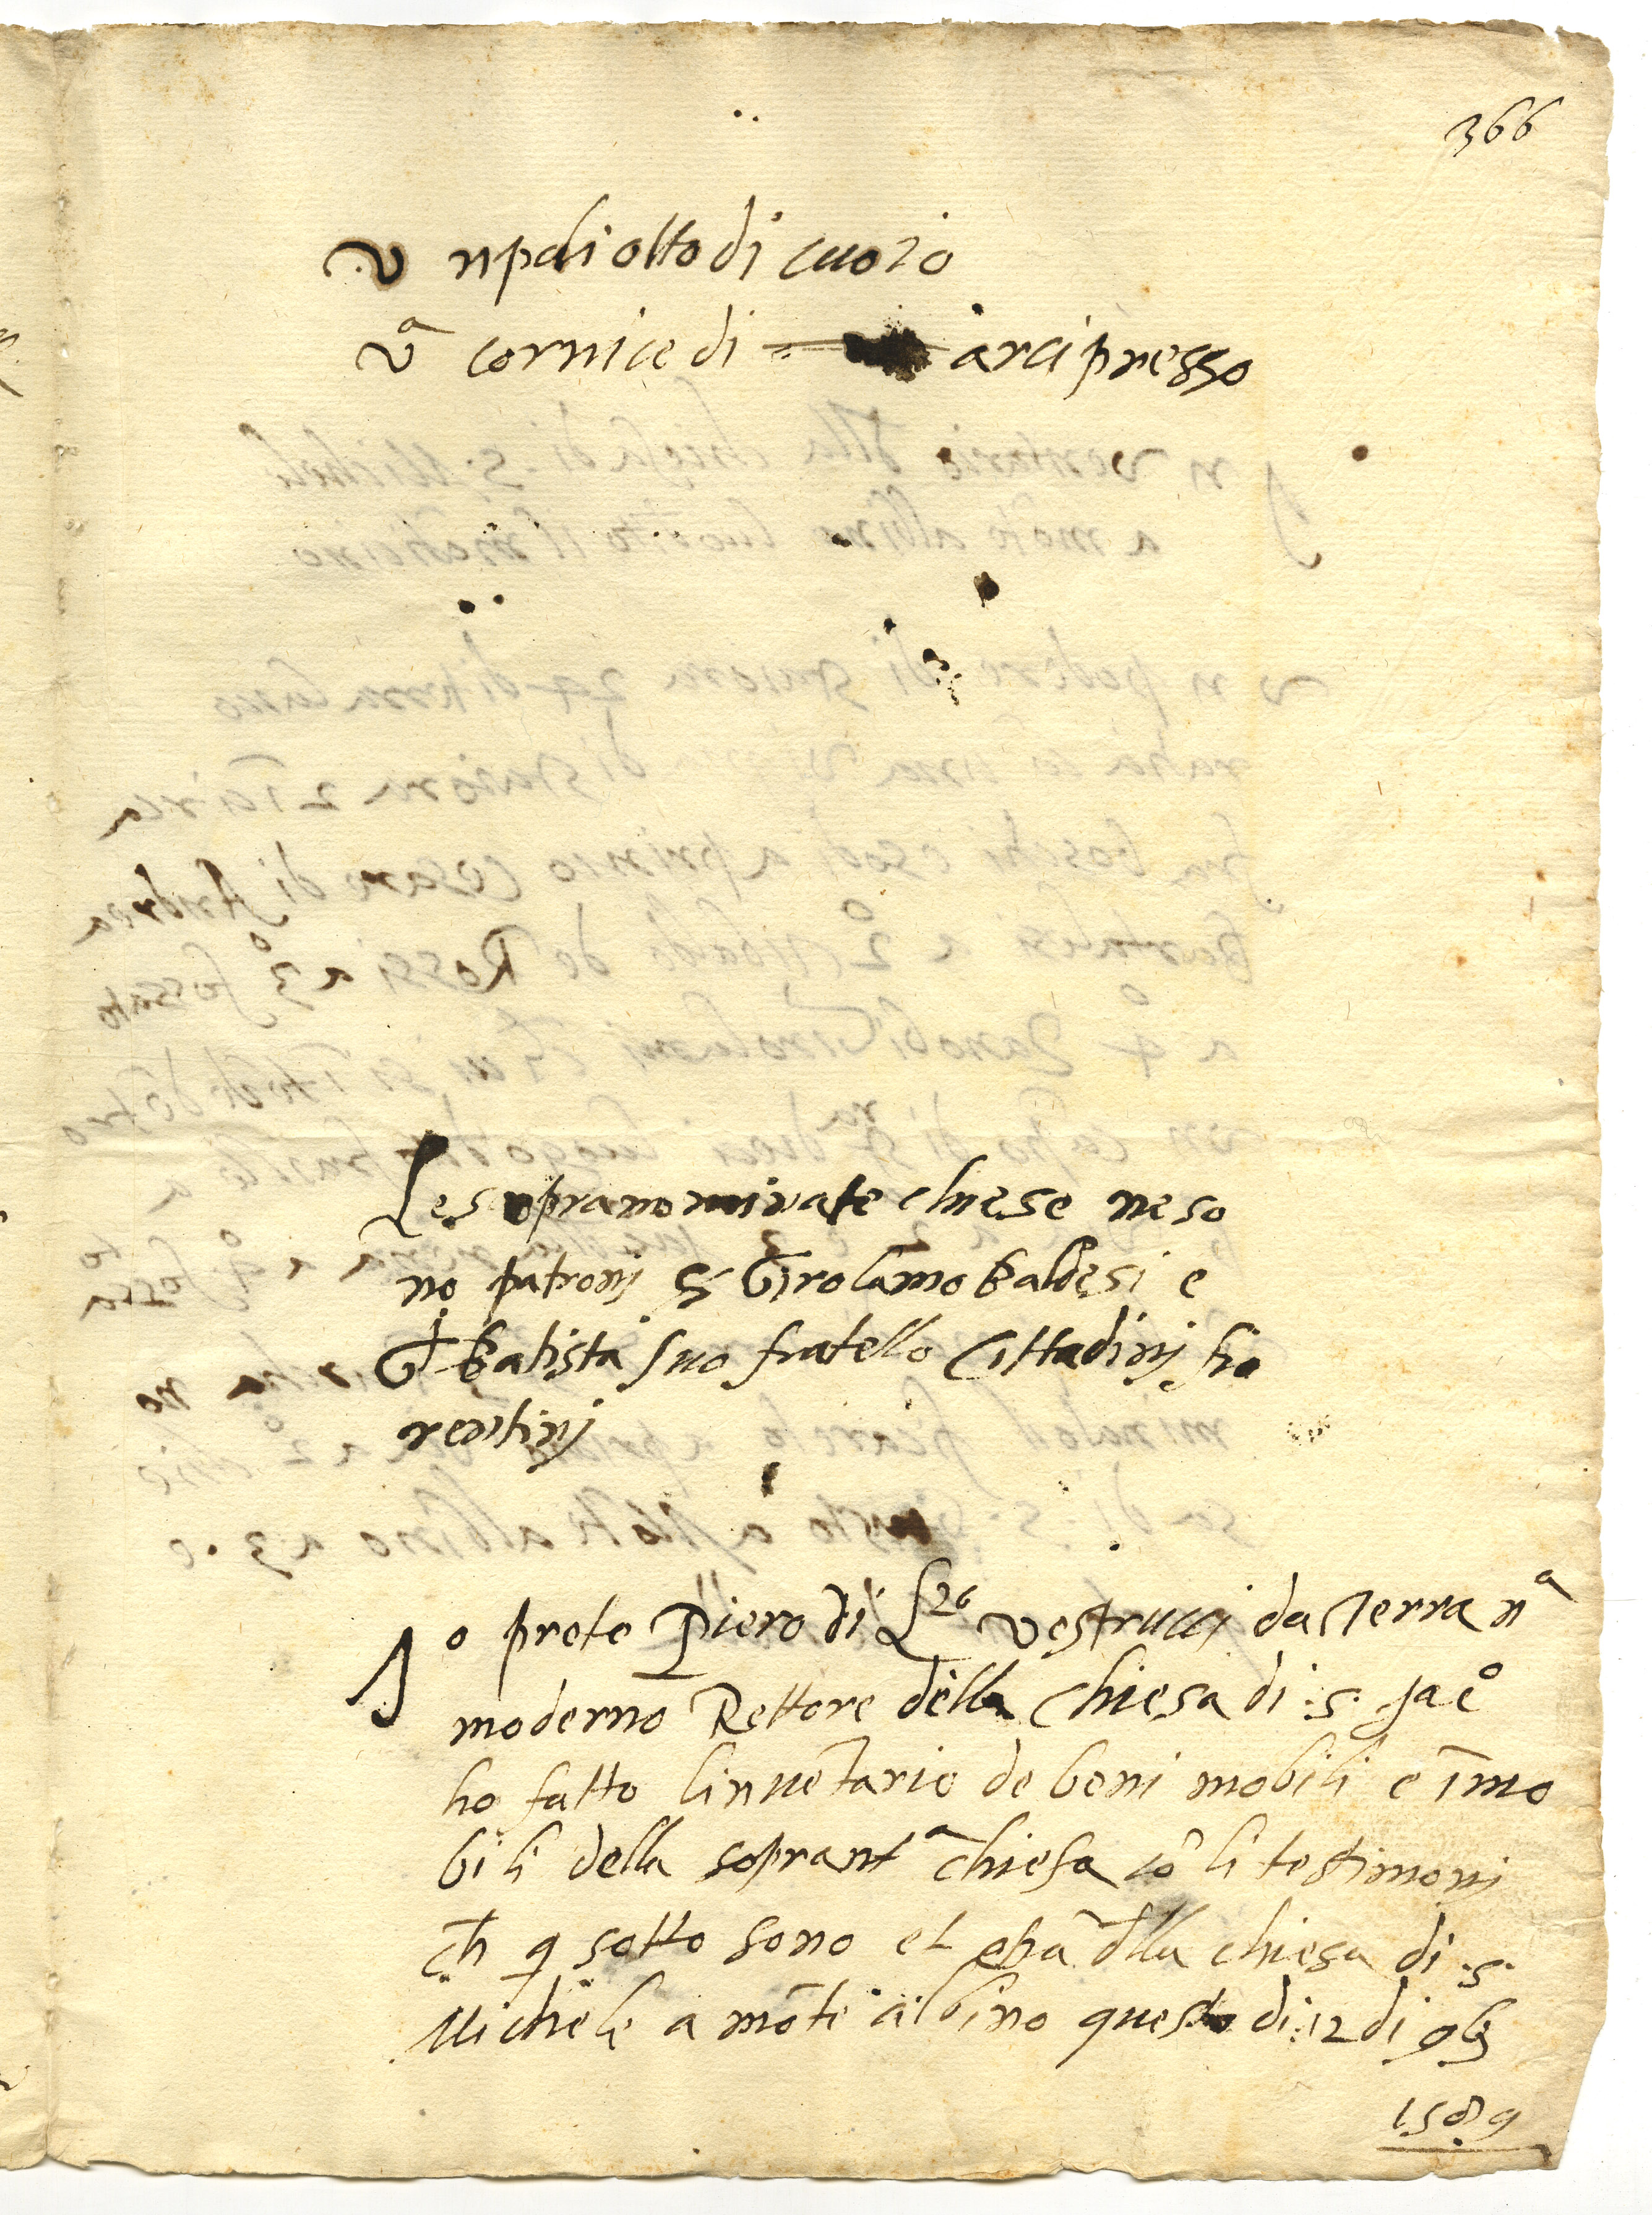 366
Un paliotto di cuoio
Vª cornice di arcipresso
Le sopranominate chiese ne so
no patronj Girolamo Baldesi e
Gi Batista suo fratello Cittadinj fio
rentinj
Io prete Piero di Lzº Vestruccj da Terra nª
moderno Rettore della Chiesa di .s. Jacº
ho fatto linuētario de beni mobili e īmo
bili della soprantª chiesa cō li testimonj
ch̄ q sotto sono et della chiesa di .s.
Michele a mōte albino questo di .12 di 9bre
1589